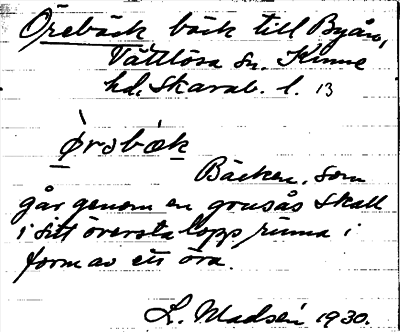 Örebäck bäck till Byån,
Vättlösa sn. Kinne
hd. Skarab. l. 13
Ørəbæk
Bäcken, som
går genom en grusås skall
i sitt översta lopp rinna i
form av ett öra.
L. Madsén 1930.